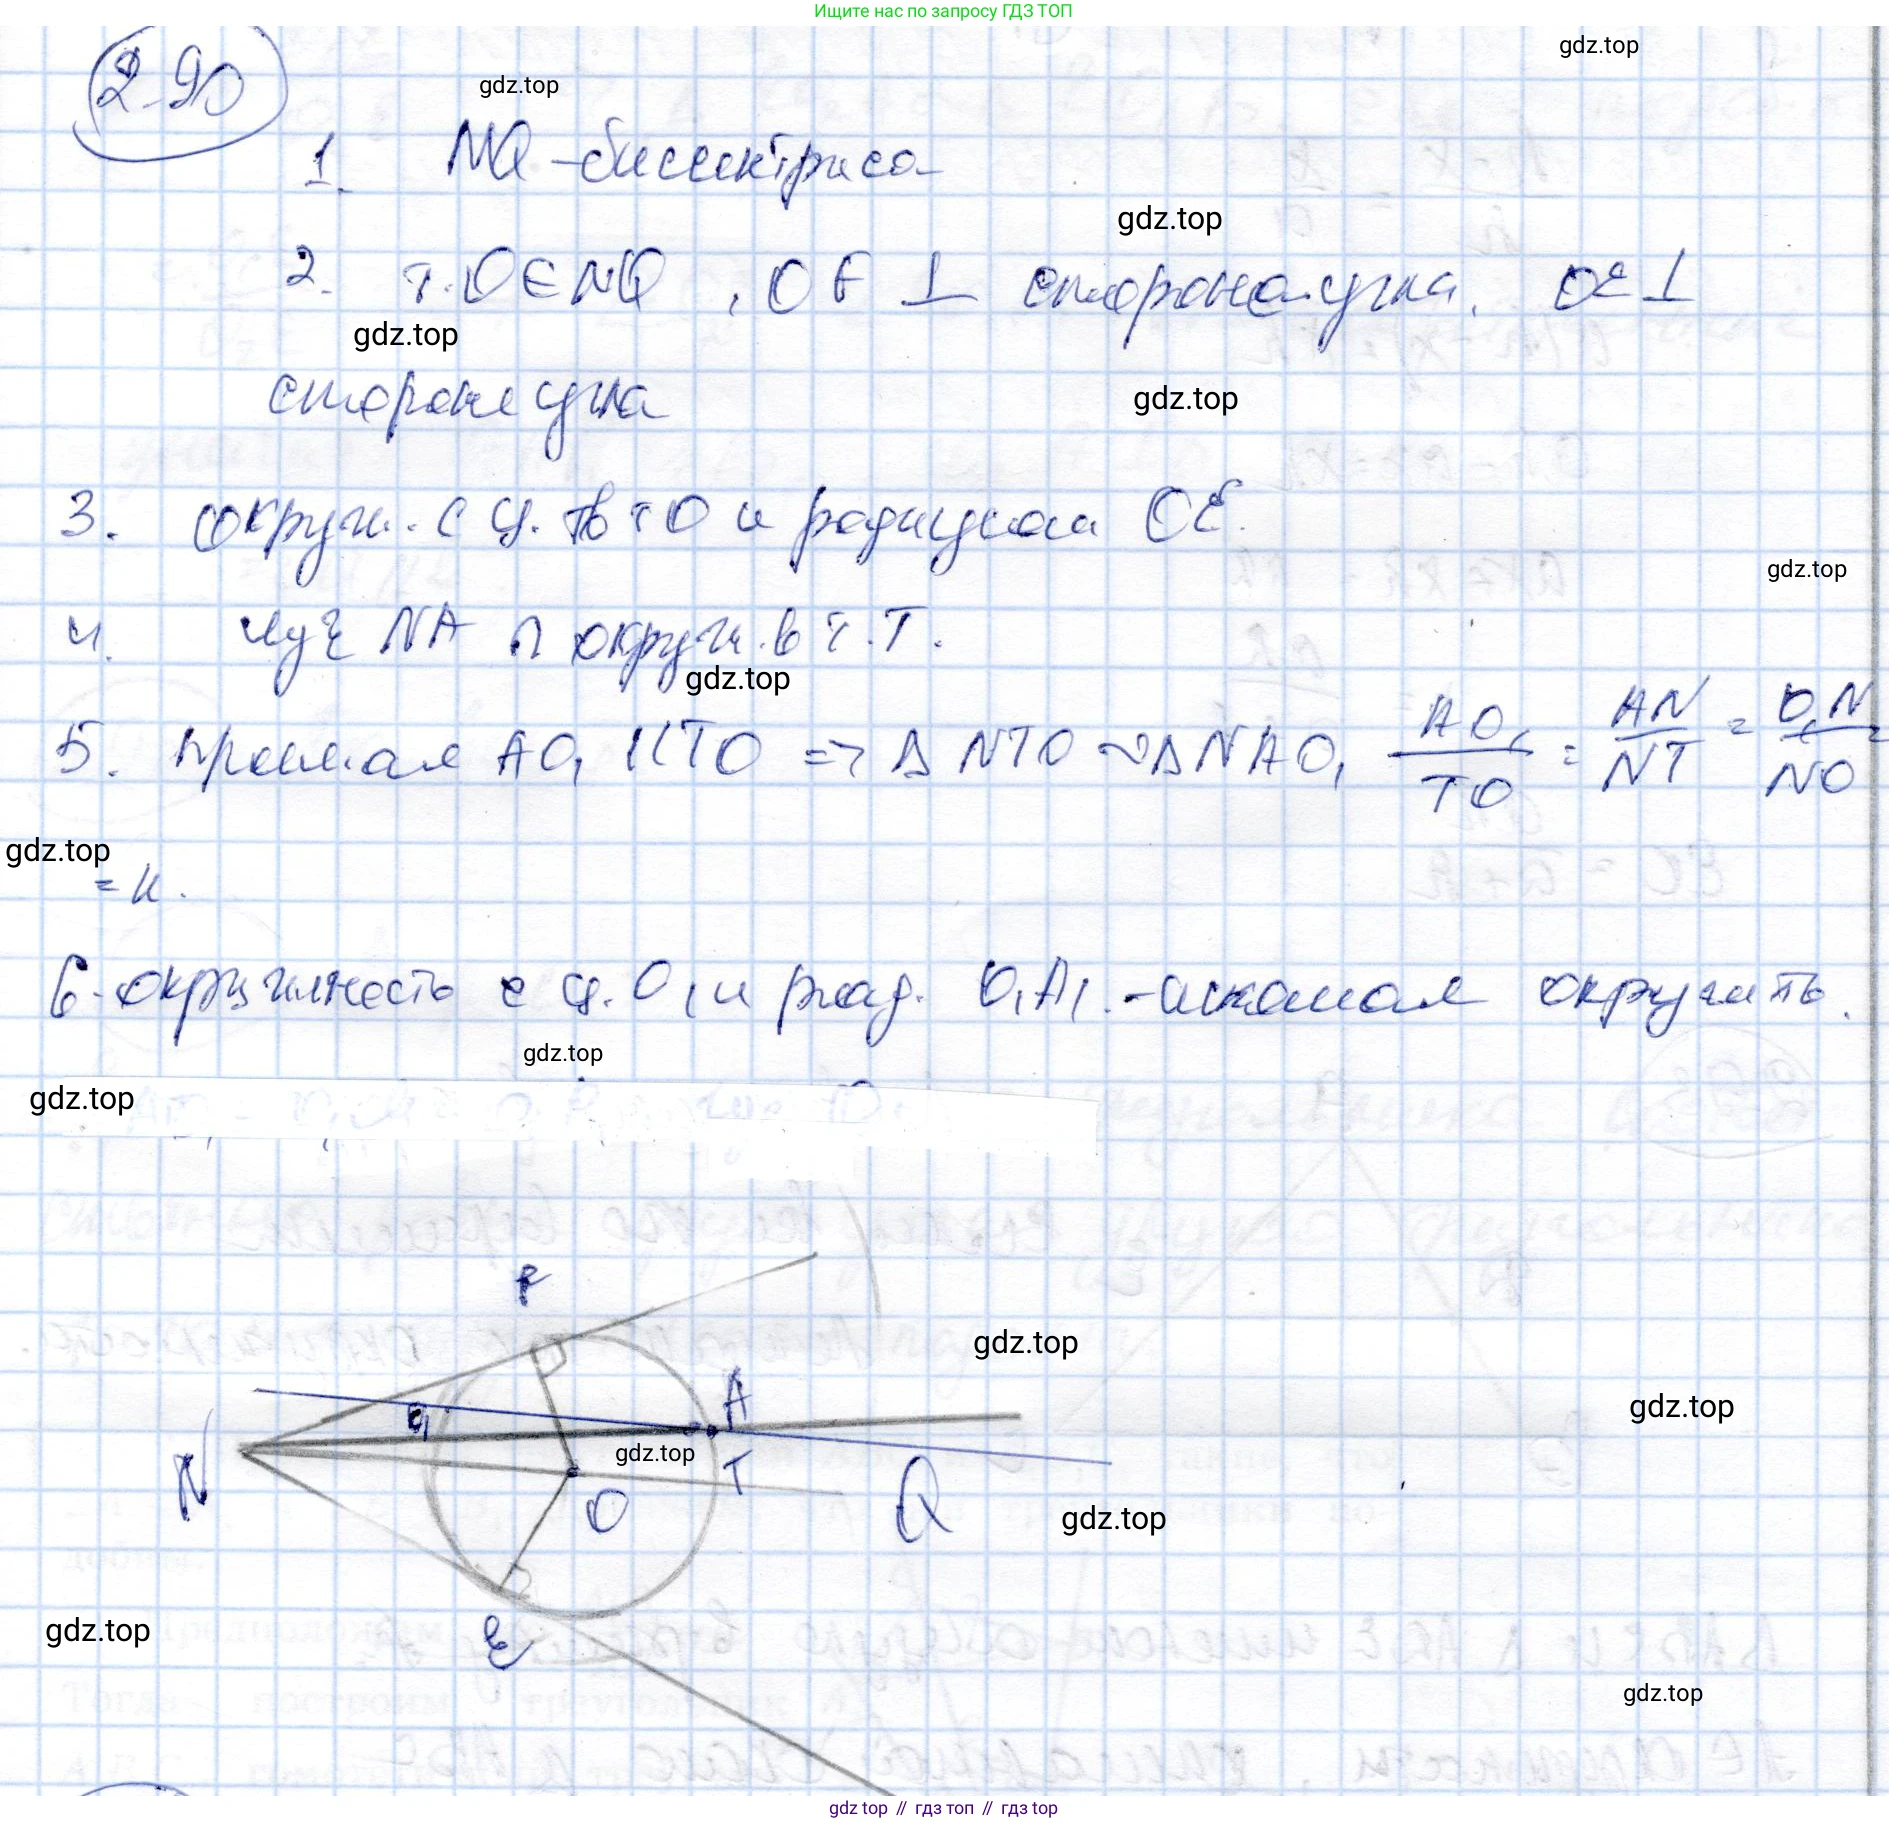 Ищите нас по запросу ГДЗ ТОП
2.90
gdz.top
gdz.top
1. NQ - биссектриса
gdz.top
2. т. O ∈ NQ, OF ⊥ стороне угла, OE ⊥
gdz.top
стороне угла
gdz.top
3. окружн. с ц. в т O и радиусом OE.
gdz.top
4. луч NA ∩ окружн. в т. T.
gdz.top
5. прямая AO₁ ∥ TO => Δ NTO ∾ Δ NAO₁ AO₁/TO = AN/NT = O₁N/NO =
gdz.top
= k.
6. окружность с ц. O₁ и рад. O₁A₁. - искомая окружность.
gdz.top
gdz.top
F
gdz.top
A
gdz.top
O₁
gdz.top
N
T
Q
O
gdz.top
E
gdz.top
gdz.top
gdz top // гдз топ // гдз top